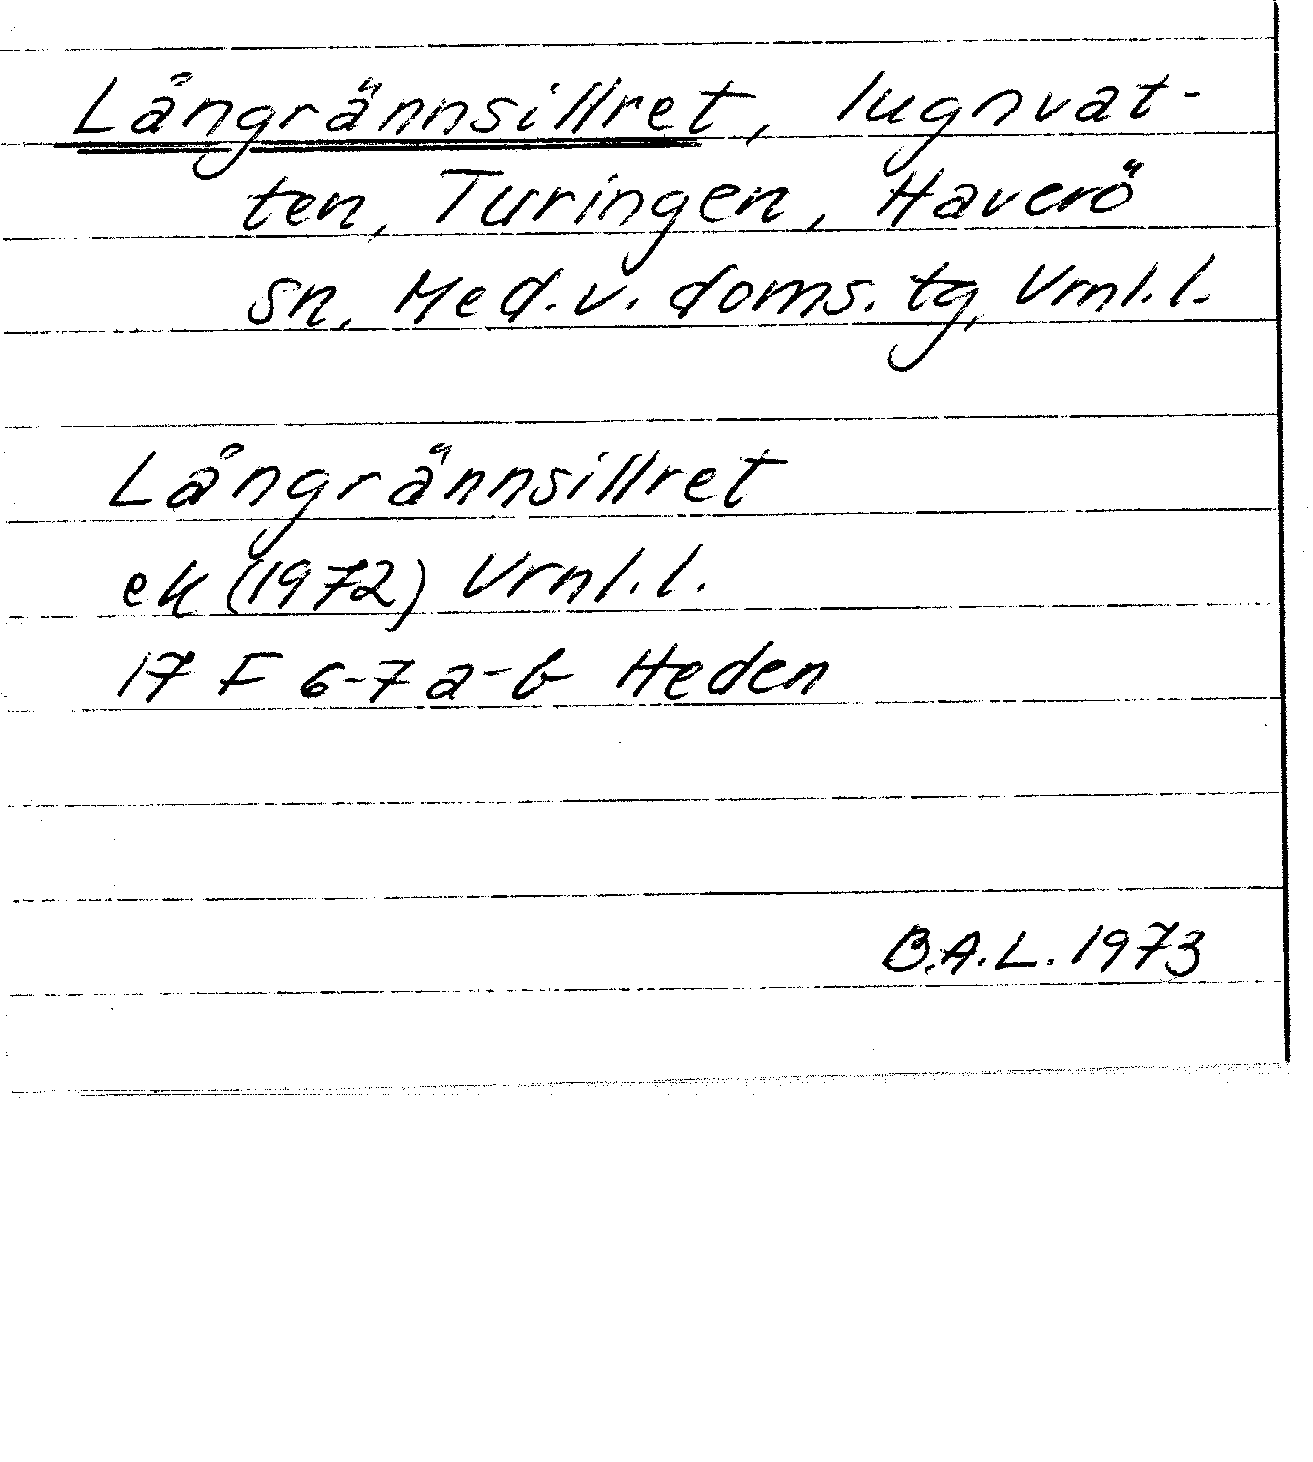 Långrännsillret, lugnvat-
ten, Turingen, Haverö
sn, Med.v. doms. tg, Vrnl.l.
Långrännsillret
ek (1972) Vrnl.l.
17 F 6-7 a-b Heden
B.A.L. 1973